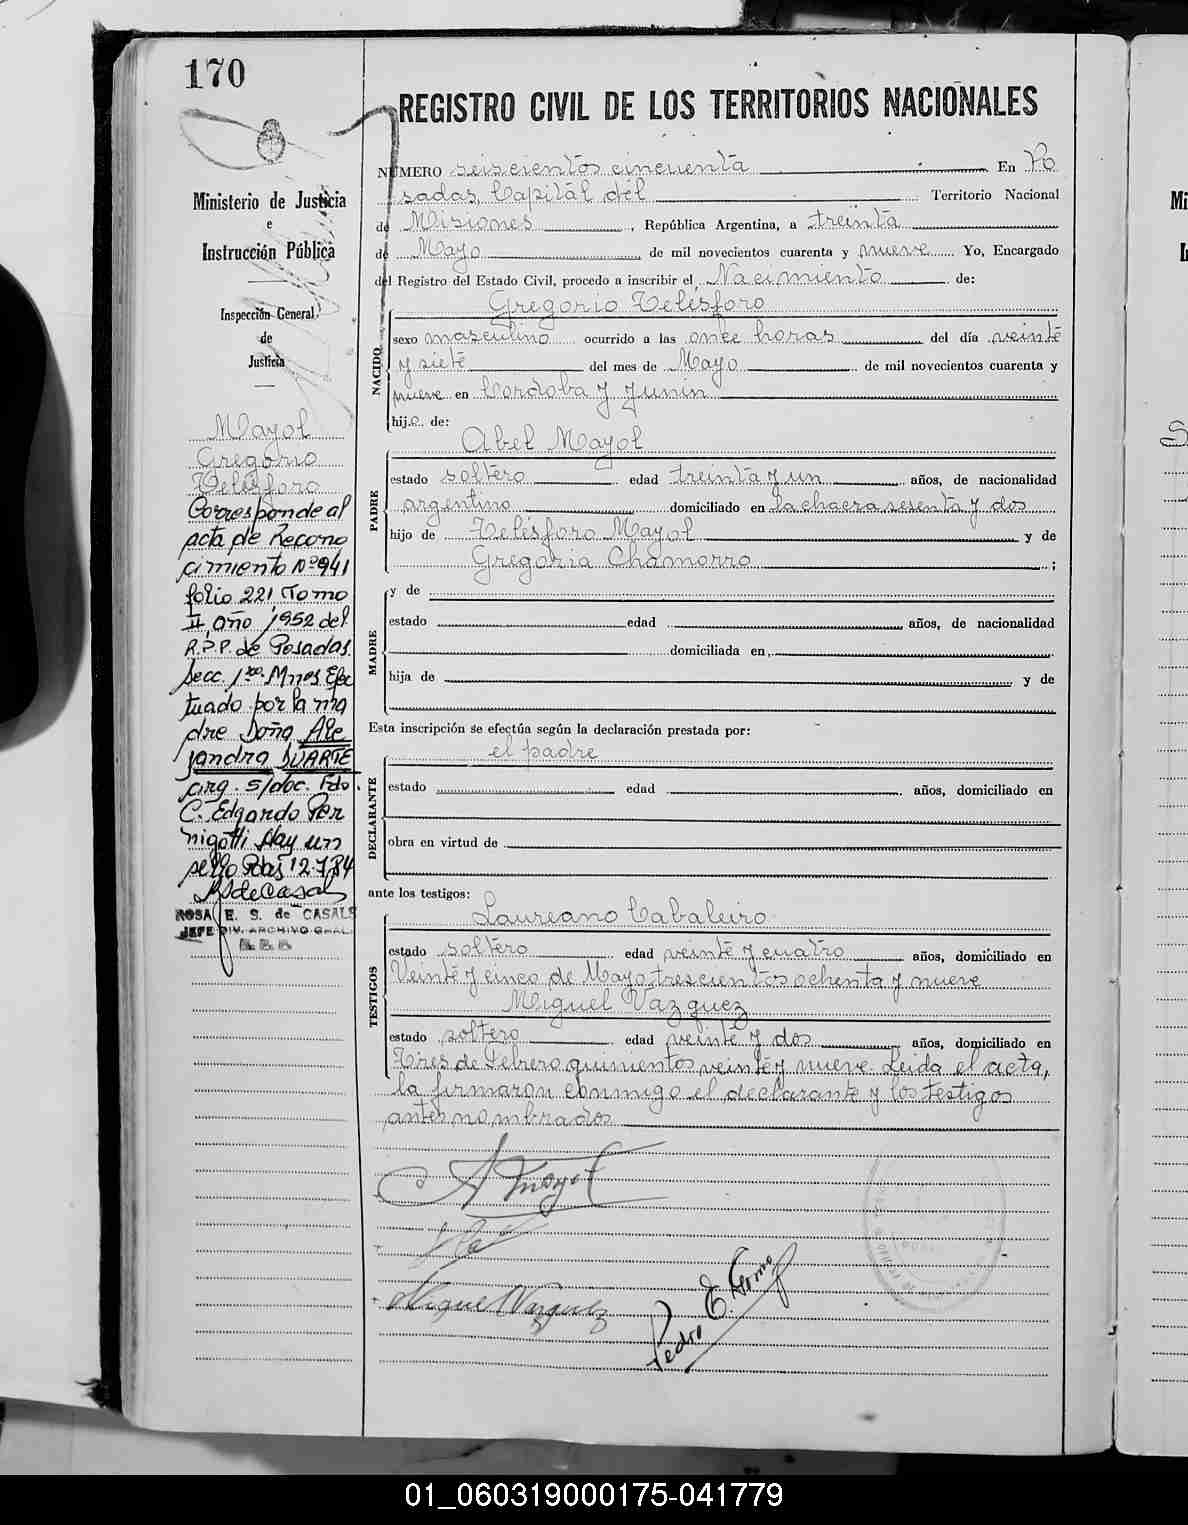 170
REGISTRO CIVIL DE LOS TERRITORIOS NACIONALES
Ministerio de Justicia
e
Instrucción Pública
Inspección General
de
Justicia
Mayol
Gregorio
Telésforo
Corresponde al
acta de Recono
cimiento Nº 941
folio 221, Tomo
II año 1952 del
R.P.P. de Posadas
Secc. 1ra. Mnes Efec
tuado por la ma
dre Doña Ale
jandra DUARTE
arg. s/doc. Fdo.
C. Edgardo Per
nigotti Hay un
sello Pdas 12-7-84
ROSA E. S. de CASALS
JEFE DIV. ARCHIVO GRAL.
NUMERO seiscientos cincuenta En Po
sadas, Capital del Territorio Nacional
de Misiones, República Argentina, a treinta
de Mayo de mil novecientos cuarenta y nueve Yo, Encargado
del Registro del Estado Civil, procedo a inscribir el Nacimiento de:
NACIDO
Gregorio Telésforo
sexo masculino ocurrido a las once horas del día veinte
y siete del mes de Mayo de mil novecientos cuarenta y
nueve en Cordoba y Junin
hijo de:
PADRE
Abel Mayol
estado soltero edad treinta y un años, de nacionalidad
argentino domiciliado en la chacra sesenta y dos
hijo de Telésforo Mayol y de
Gregoria Chamorro ;
MADRE
y de
estado edad años, de nacionalidad
domiciliada en,
hija de y de
Esta inscripción se efectúa según la declaración prestada por:
DECLARANTE
el padre
estado edad años, domiciliado en
obra en virtud de
ante los testigos:
TESTIGOS
Laureano Cabaleiro
estado soltero edad veinte y cuatro años, domiciliado en
Veinte y cinco de Mayo trescientos ochenta y nueve
Miguel Vazquez
estado soltero edad veinte y dos años, domiciliado en
Tres de Febrero quinientos veinte y nueve. Leida el acta,
la firmaron conmigo el declarante y los testigos
antes nombrados
A Mayol
Miguel Vazquez
Pedro E.
01_060319000175-041779